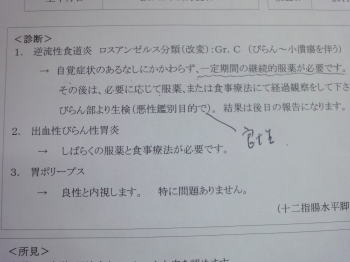 <診断>
1. 逆流性食道炎 ロスアンゼルス分類(改変):Gr. C (びらん~小潰瘍を伴う)
→ 自覚症状のあるなしにかかわらず、一定期間の継続的服薬が必要です。
その後は、必要に応じて服薬、または食事療法にて経過観察をして下さ
びらん部より生検(悪性鑑別目的で)。 結果は後日の報告になります。
良性
2. 出血性びらん性胃炎
→ しばらくの服薬と食事療法が必要です。
3. 胃ポリープス
→ 良性と内視します。 特に問題ありません。
(十二指腸水平脚
<所見>